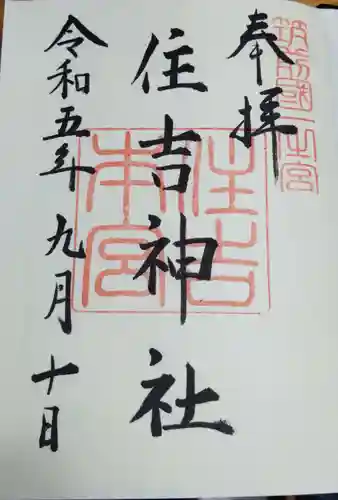 筑前國一之宮
奉拝
住吉神社
住吉本宮
令和五年九月十日